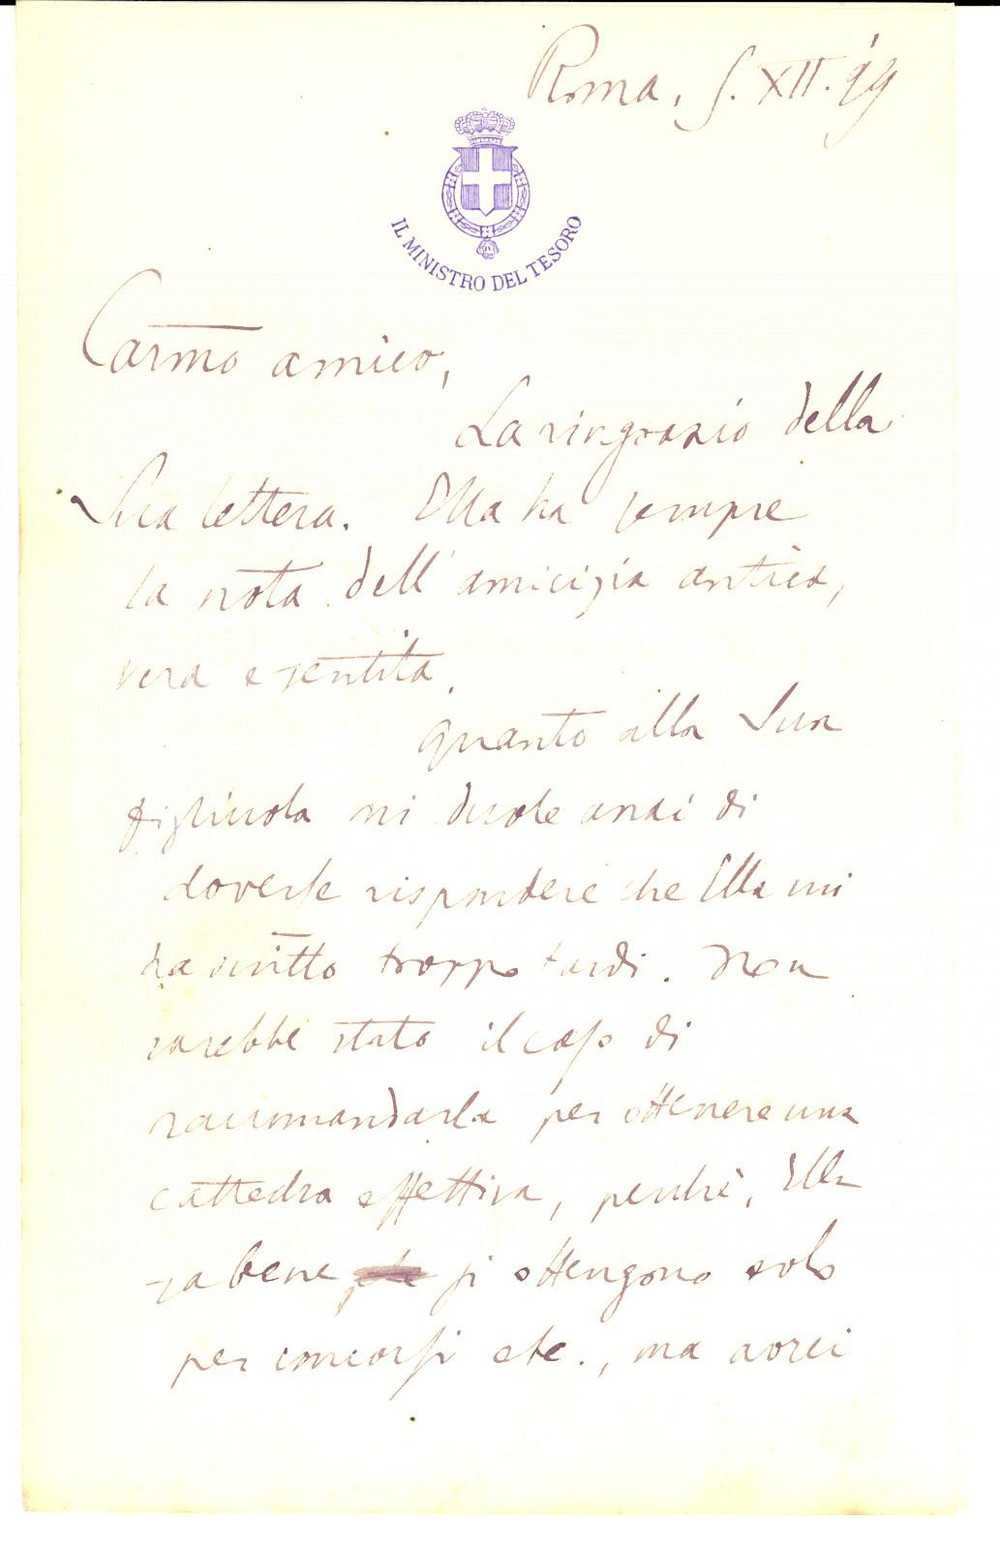 Roma, 5. XII. 99
IL MINISTRO DEL TESORO
Carmo amico,
La ringrazio della
Sua lettera. Ella ha sempre
la nota dell'amicizia antica,
vera e sentita.
Quanto alla Sua
figliuola mi duole assai di
doverle rispondere che Ella mi
ha scritto troppo tardi. Non
sarebbe stato il caso di
raccomandarla per ottenere una
cattedra effettiva, perchè, Ella
sa bene si ottengono solo
per concorsi etc., ma avrei